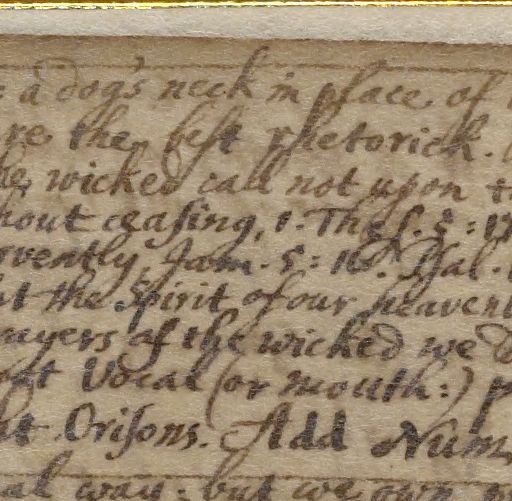 a dog's neck in place of
the best rhetorick.
wicked call not upon
hout ceaſing, 1. Theſ. 5: 17
rvently, Jam. 5: 16. Pſal.
the Spirit of our heavenl
rayers of the wicked we
Vocal (or mouth:) p
ht Oriſons. Add Num
al way: but we